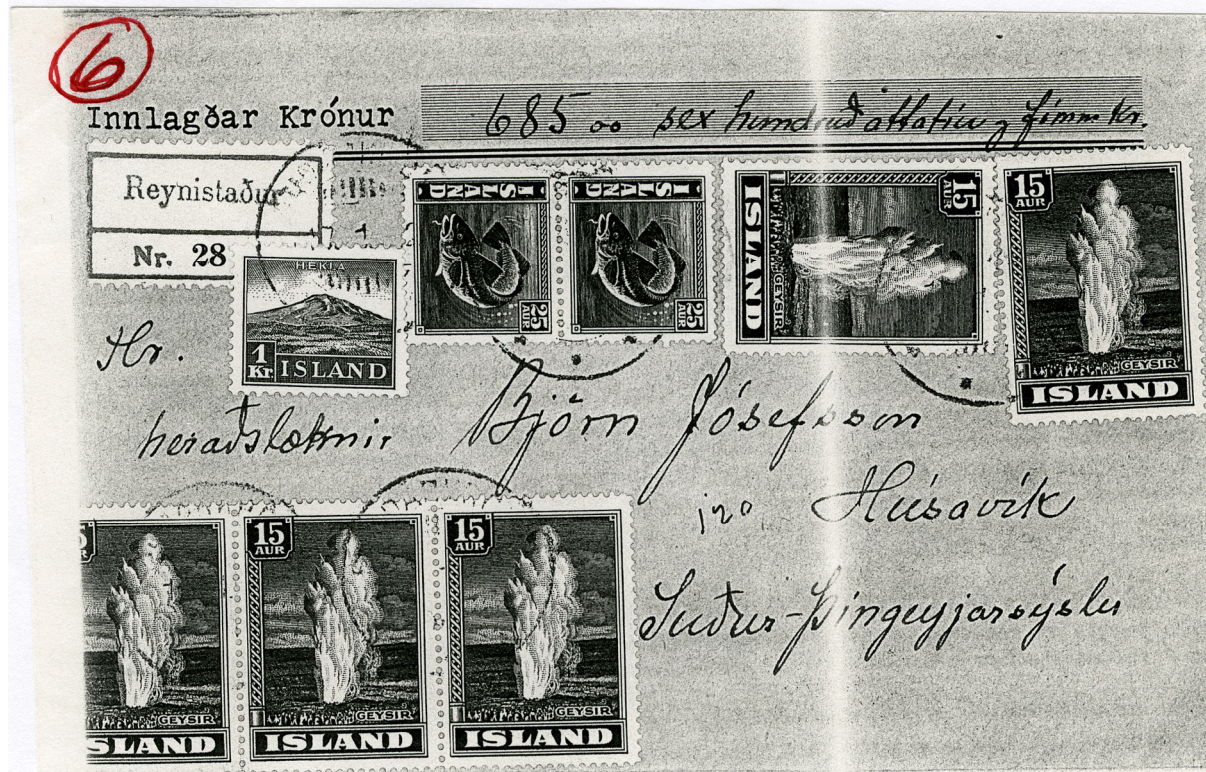 6
Innlagðar Krónur 685 00 sex hundruð áttatíu g fimm kr.
Reynistaður
Nr. 28
HEKLA
1 Kr. ISLAND
ISLAND 25 AUR
ISLAND 25 AUR
15 AUR GEYSIR ISLAND
15 AUR GEYSIR ISLAND
Hr.
heraðslæknir Björn Jósefsson
Húsavík
Suður-Þingeyjarsýslu
GEYSIR SLAND
15 AUR GEYSIR ISLAND
15 AUR GEYSIR ISLAND